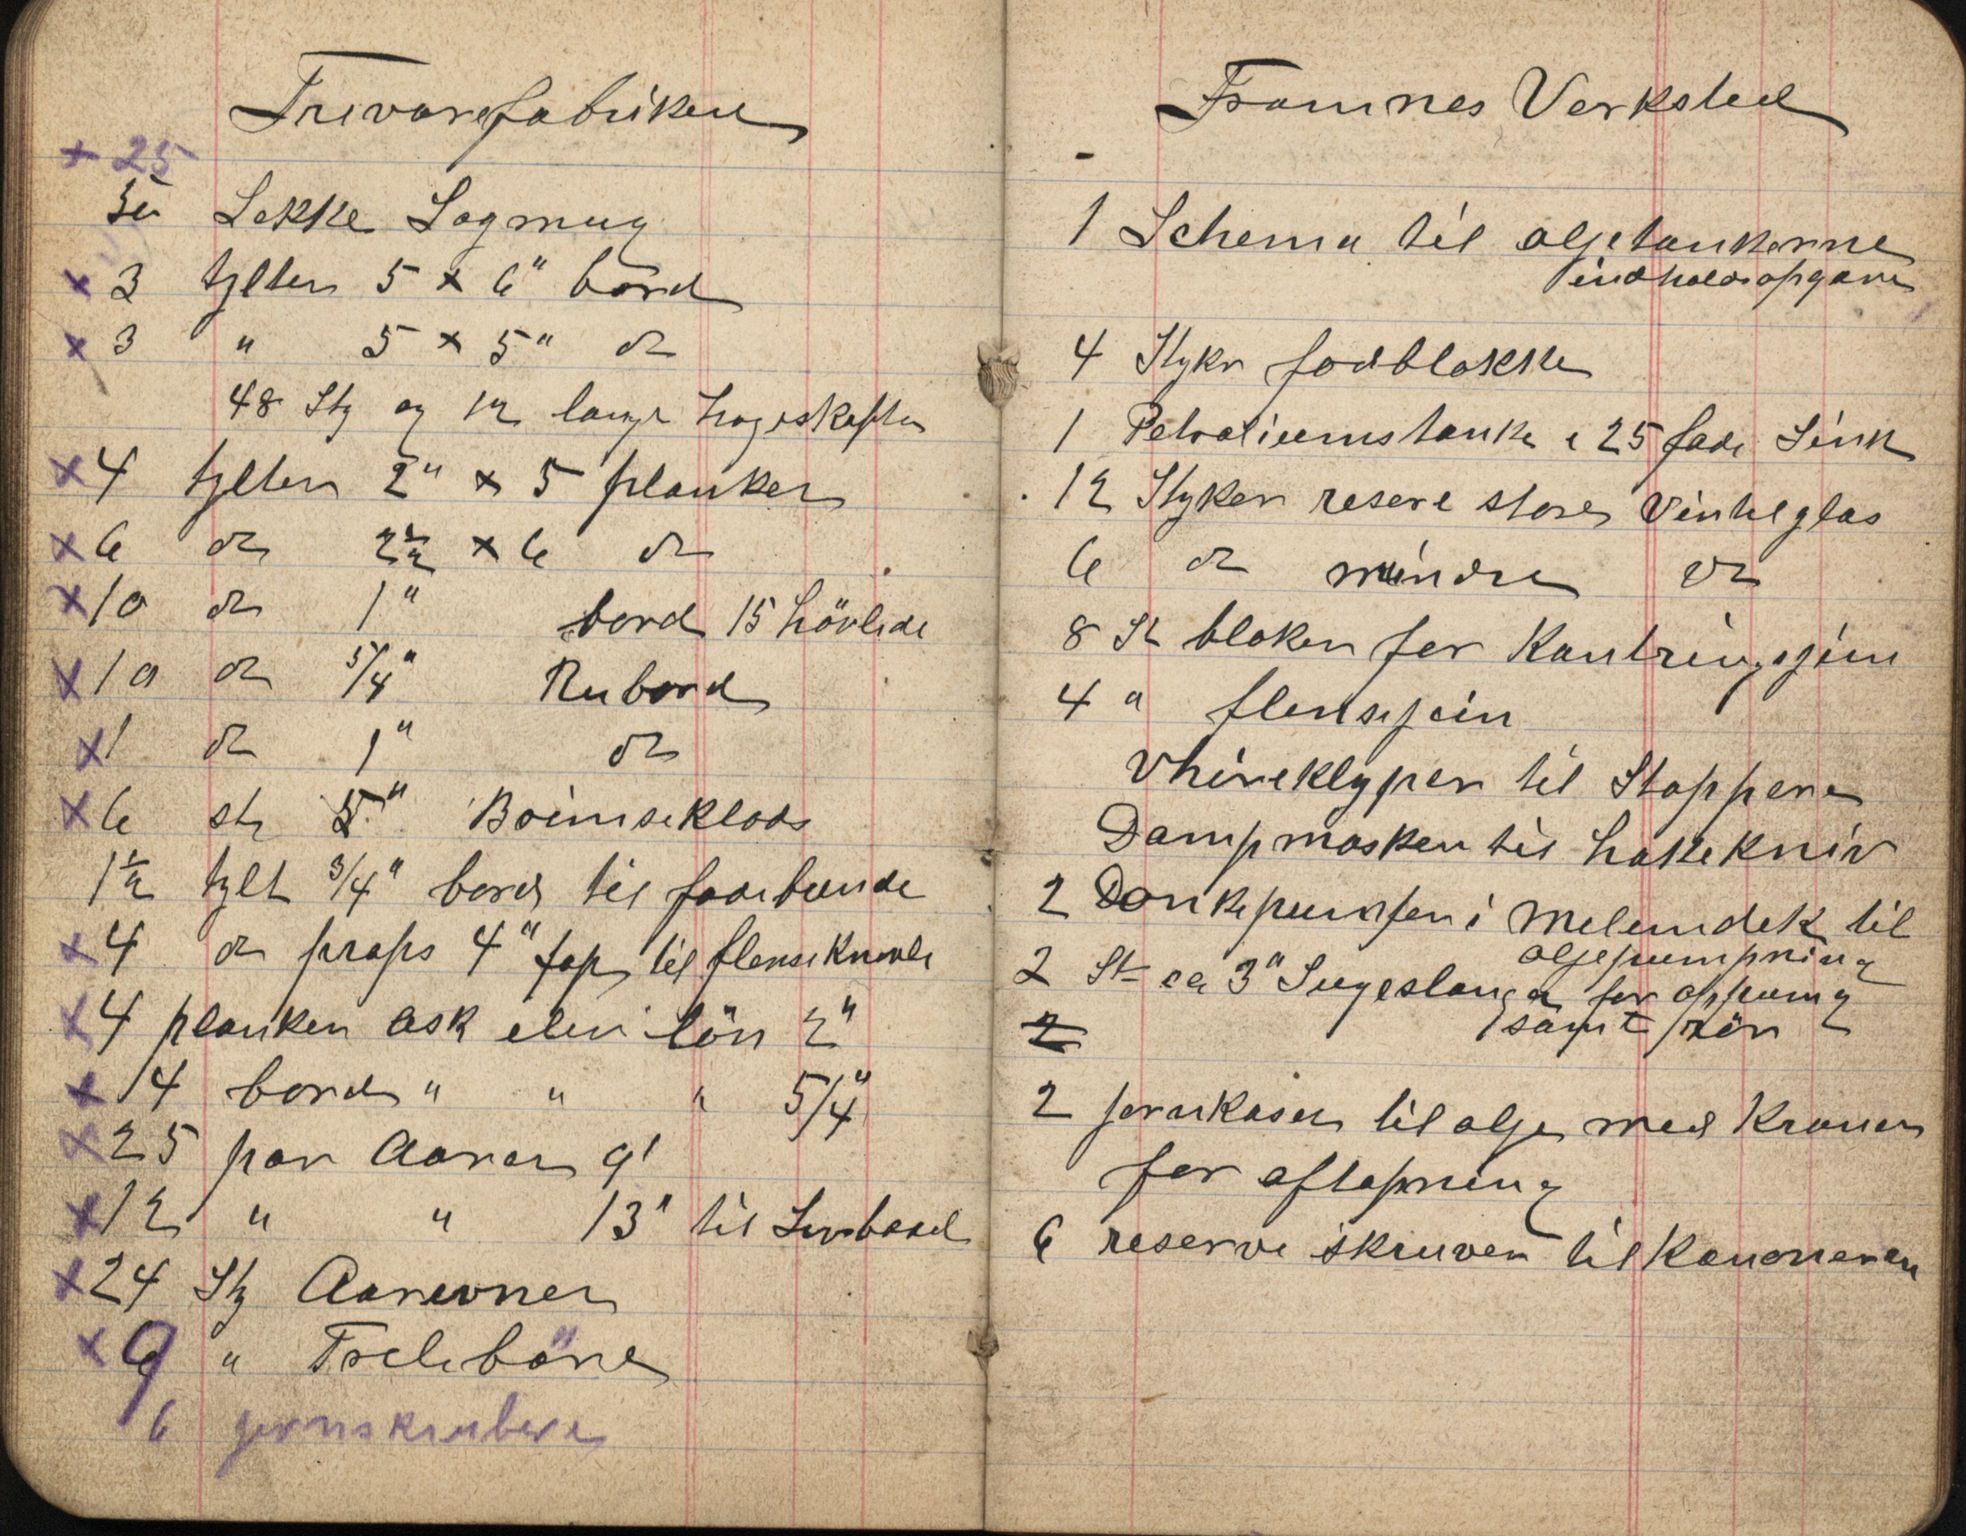 Trevarefabriken
x 25
Sekke Sagmug
x 3 tylter 5 x 6" bord
x 3 " 5 x 5" do
48 Stg og 12 lange hageskafter
x 4 tylter 2" x 5 planker
x 6 do 2½ x 6 do
x 10 do 1" bord 15 hövlede
x 10 do 5/4" Rubord
x 1 do 1" do
x 6 st 5"
1½ tylt 3/4" bord til fadebunde
x 4 do props 4" top til flenseknevle
x 4 planker ask eler lön 2"
x 14 bord " " " 5/4"
x 25 par Aarer 9'
x 12 " " 13" til Livbaad
x 24 Stg Aareemner
x 9 " Treleböre
6 jernskrubere
Framnes Verksted
1 Schema til oljetankerne
indholdsopgave
4 Stykr fodblokke
1 Petroliumstank 25 fade Sink
12 Styker reserve store Vinkelglas
6 do mindre do
8 St bloker for Kantringsgjein
4 " flensegein
Vhireklyper til Stoppere
Dampmasken til hakekniv
2 Donkepumper i Melemdek til
oljepumpning
2 St ca 3" Sugeslanger for oppumg
samt rör
2
2 jernkaser til olje med Kraner
for aftapning
6 reserve skruver til Kanoneren